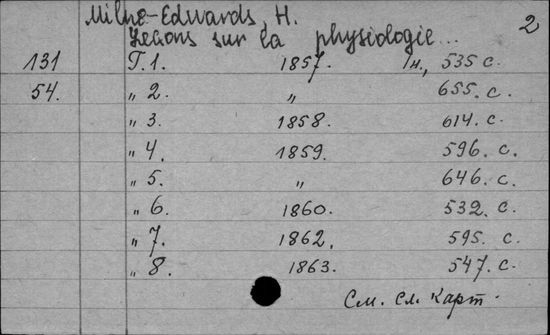 Milne-Edwards, H. 2
Lecons sur la physiologie...
131 T. 1. 1857. 535 с.
54. " 2. " 655. с.
" 3. 1858. 614. с.
" 4. 1859. 596. с.
" 5. " 646. с.
" 6. 1860. 532. с.
" 7. 1862. 595. с.
" 8. 1863. 547. с.
См. сл. карт.